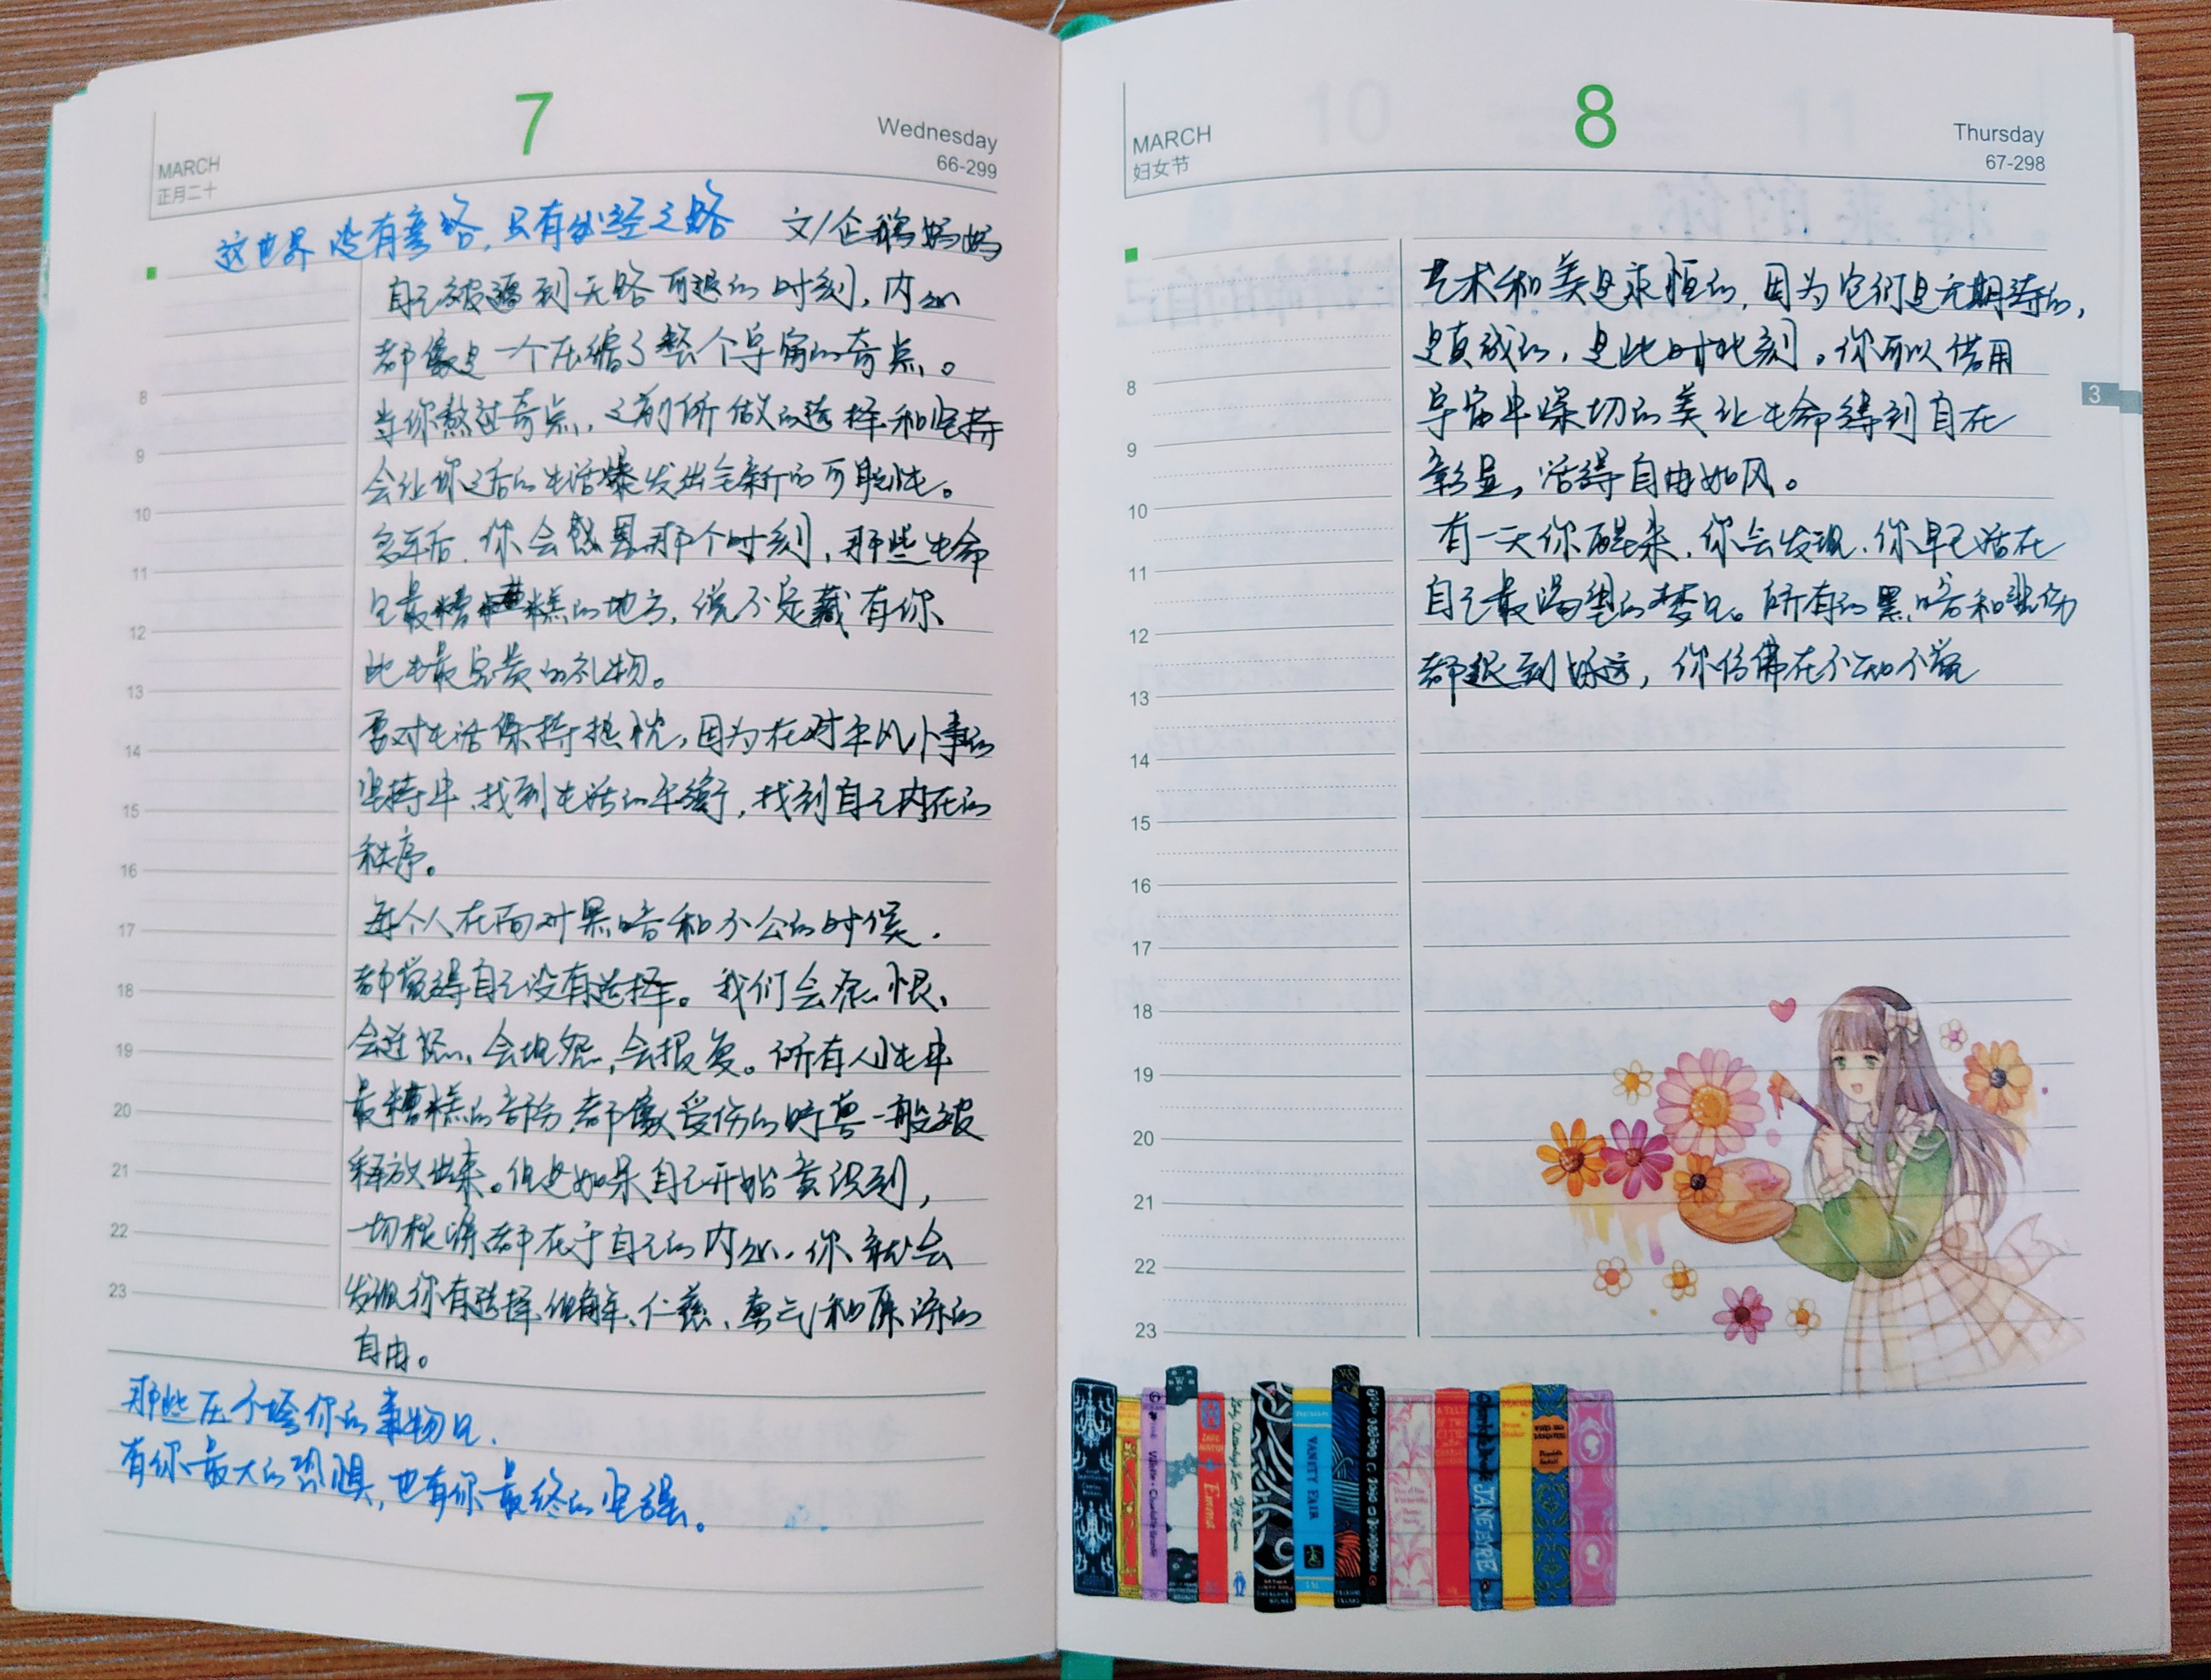 7
MARCH
正月二十
Wednesday
66-299
这世界没有弯路，只有必经之路 文/企鹅妈妈
自己被逼到无路可退的时刻，内心
都像是一个压缩了整个宇宙的奇点。
当你熬过奇点，之前所做的选择和坚持
会让你之后的生活爆发出全新的可能性。
多年后，你会感恩那个时刻，那些生命
里最糟糕的地方，说不定藏有你
此生最宝贵的礼物。
要对生活保持热忱，因为在对平凡小事的
坚持中，找到生活的平衡，找到自己内在的
秩序。
每个人在面对黑暗和不公的时候，
都觉得自己没有选择。我们会怨恨、
会逆怒、会埋怨、会报复。所有人性中
最糟糕的部分，都像受伤的野兽一般被
释放出来。但是如果自己开始意识到，
一切根源都在于自己的内心，你就会
发现你有选择、但有解、仁慈、勇气和原谅的
自由。
那些压不垮你的事物里，
有你最大的恐惧，也有你最终的坚强。
8
9
10
11
12
13
14
15
16
17
18
19
20
21
22
23
8
MARCH
妇女节
Thursday
67-298
艺术和美是永恒的，因为它们是无期待的，
是真诚的，是此时此刻。你可以借用
宇宙中深切的美让生命得到自在
彰显，活得自由如风。
有一天你醒来，你会发现，你早已活在
自己最渴望的梦里。所有的黑暗和悲伤
都退到好远，你仿佛在不知不觉
3
8
9
10
11
12
13
14
15
16
17
18
19
20
21
22
23
Emma
VANITY FAIR
JANE EYRE